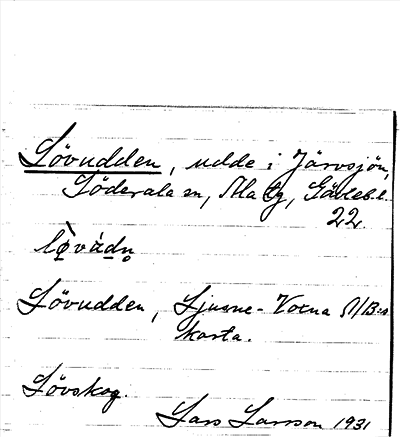 Lövudden, udde i Järvsjön,
Söderala sn, Ala tg, Gävleb.l.
22.
lø̀vàdn̥
Lövudden, Ljusne-Voxna A/B:s
karta.
Lövskog.
Lars Larsson 1931